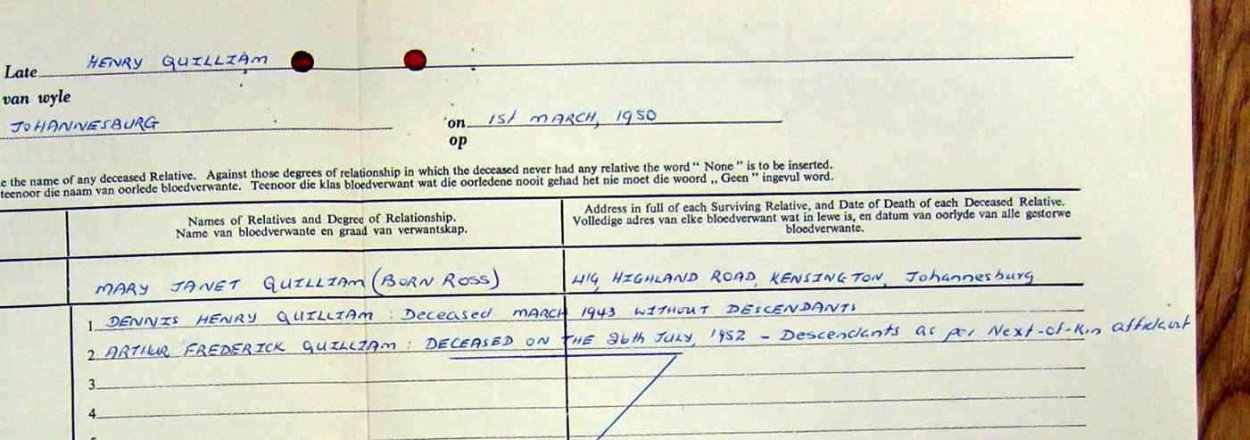 Late HENRY QUILLIAM
van wyle
JOHANNESBURG on 1st MARCH, 1950
op
e the name of any deceased Relative. Against those degrees of relationship in which the deceased never had any relative the word " None " is to be inserted.
teenoor die naam van oorlede bloedverwante. Teenoor die klas bloedverwant wat die oorledene nooit gehad het nie moet die woord „ Geen " ingevul word.
Names of Relatives and Degree of Relationship.
Name van bloedverwante en graad van verwantskap.
Address in full of each Surviving Relative, and Date of Death of each Deceased Relative.
Volledige adres van elke bloedverwant wat in lewe is, en datum van oorlyde van alle gestorwe
bloedverwante.
MARY JANET QUILLIAM (BORN ROSS) 41a HIGHLAND ROAD, KENSINGTON, Johannesburg
1 DENNIS HENRY QUILLIAM : Deceased MARCH 1943 WITHOUT DESCENDANTS
2 ARTHUR FREDERICK QUILLIAM : DECEASED ON THE 26th JULY, 1952 - Descendants as per Next-of-Kin affidavit
3
4